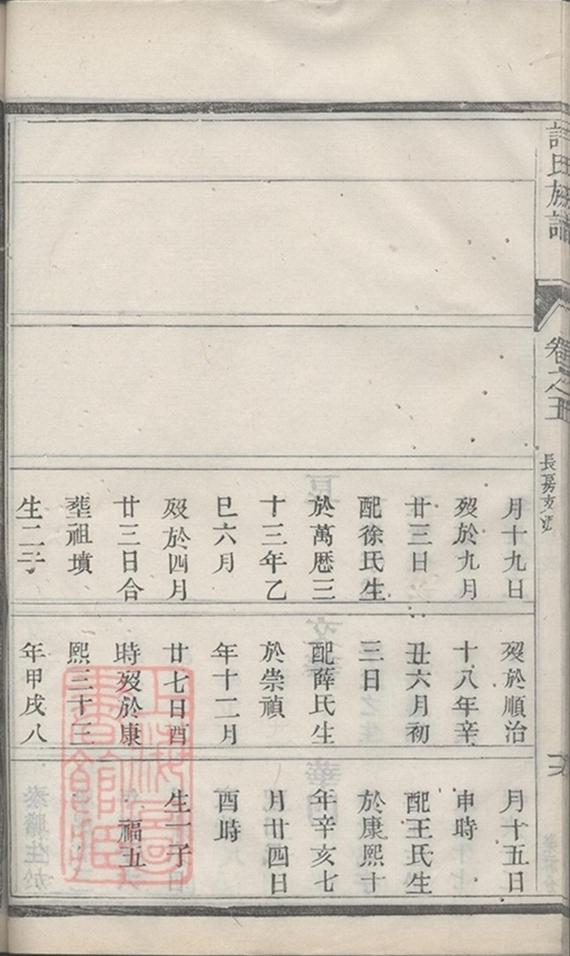 許氏族譜
卷之五
長房支派
月十九日
歿於九月
廿三日
配徐氏生
於萬曆三
十三年乙
巳六月
歿於四月
廿三日合
塟祖墳
生二子
歿於順治
十八年辛
丑六月初
三日
配薛氏生
於崇禎
年十二月
廿七日酉
時歿於康
熙三十三
年甲戌八
月十五日
申時
配王氏生
於康熙十
年辛亥七
月廿四日
酉時
生一子
福五
上海圖書館藏